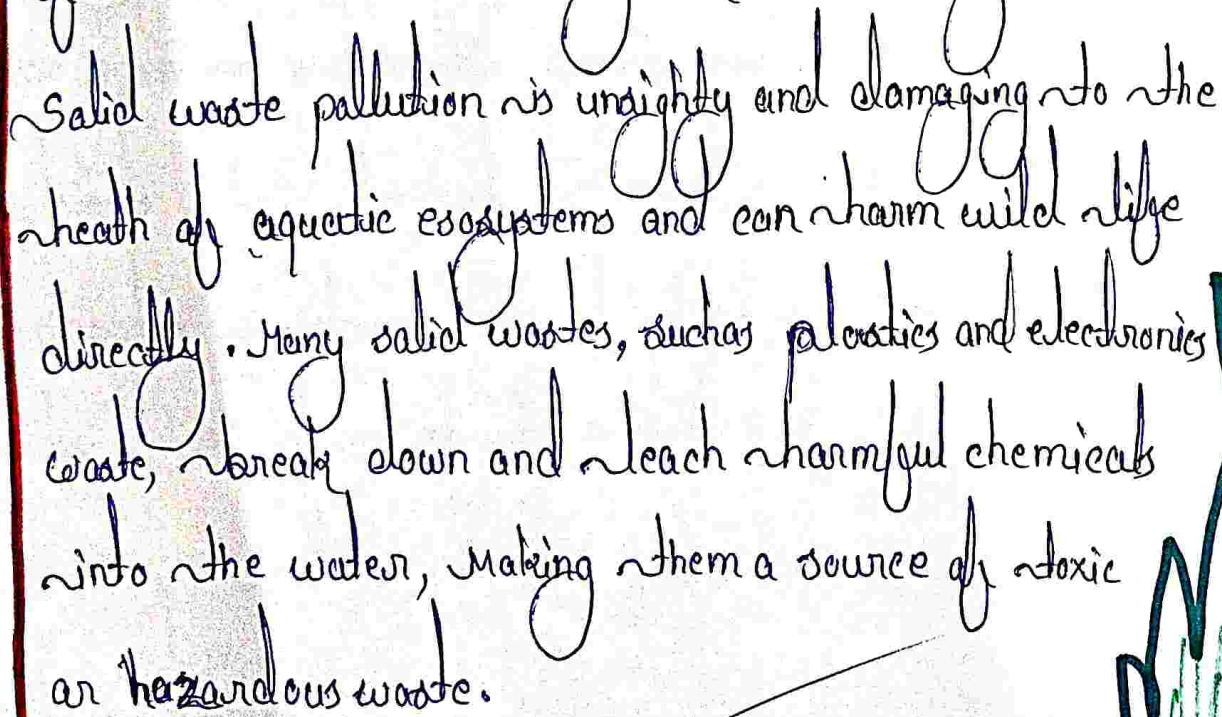 Salid waste pallution is unsighty and damaging to the
heath of aquatic esosystems and can harm wild life
directly. Many salid wastes, suchas palastics and electronics
waste, break down and leach harmful chemicals
into the water, Making them a source of toxic
ar hazardous waste.